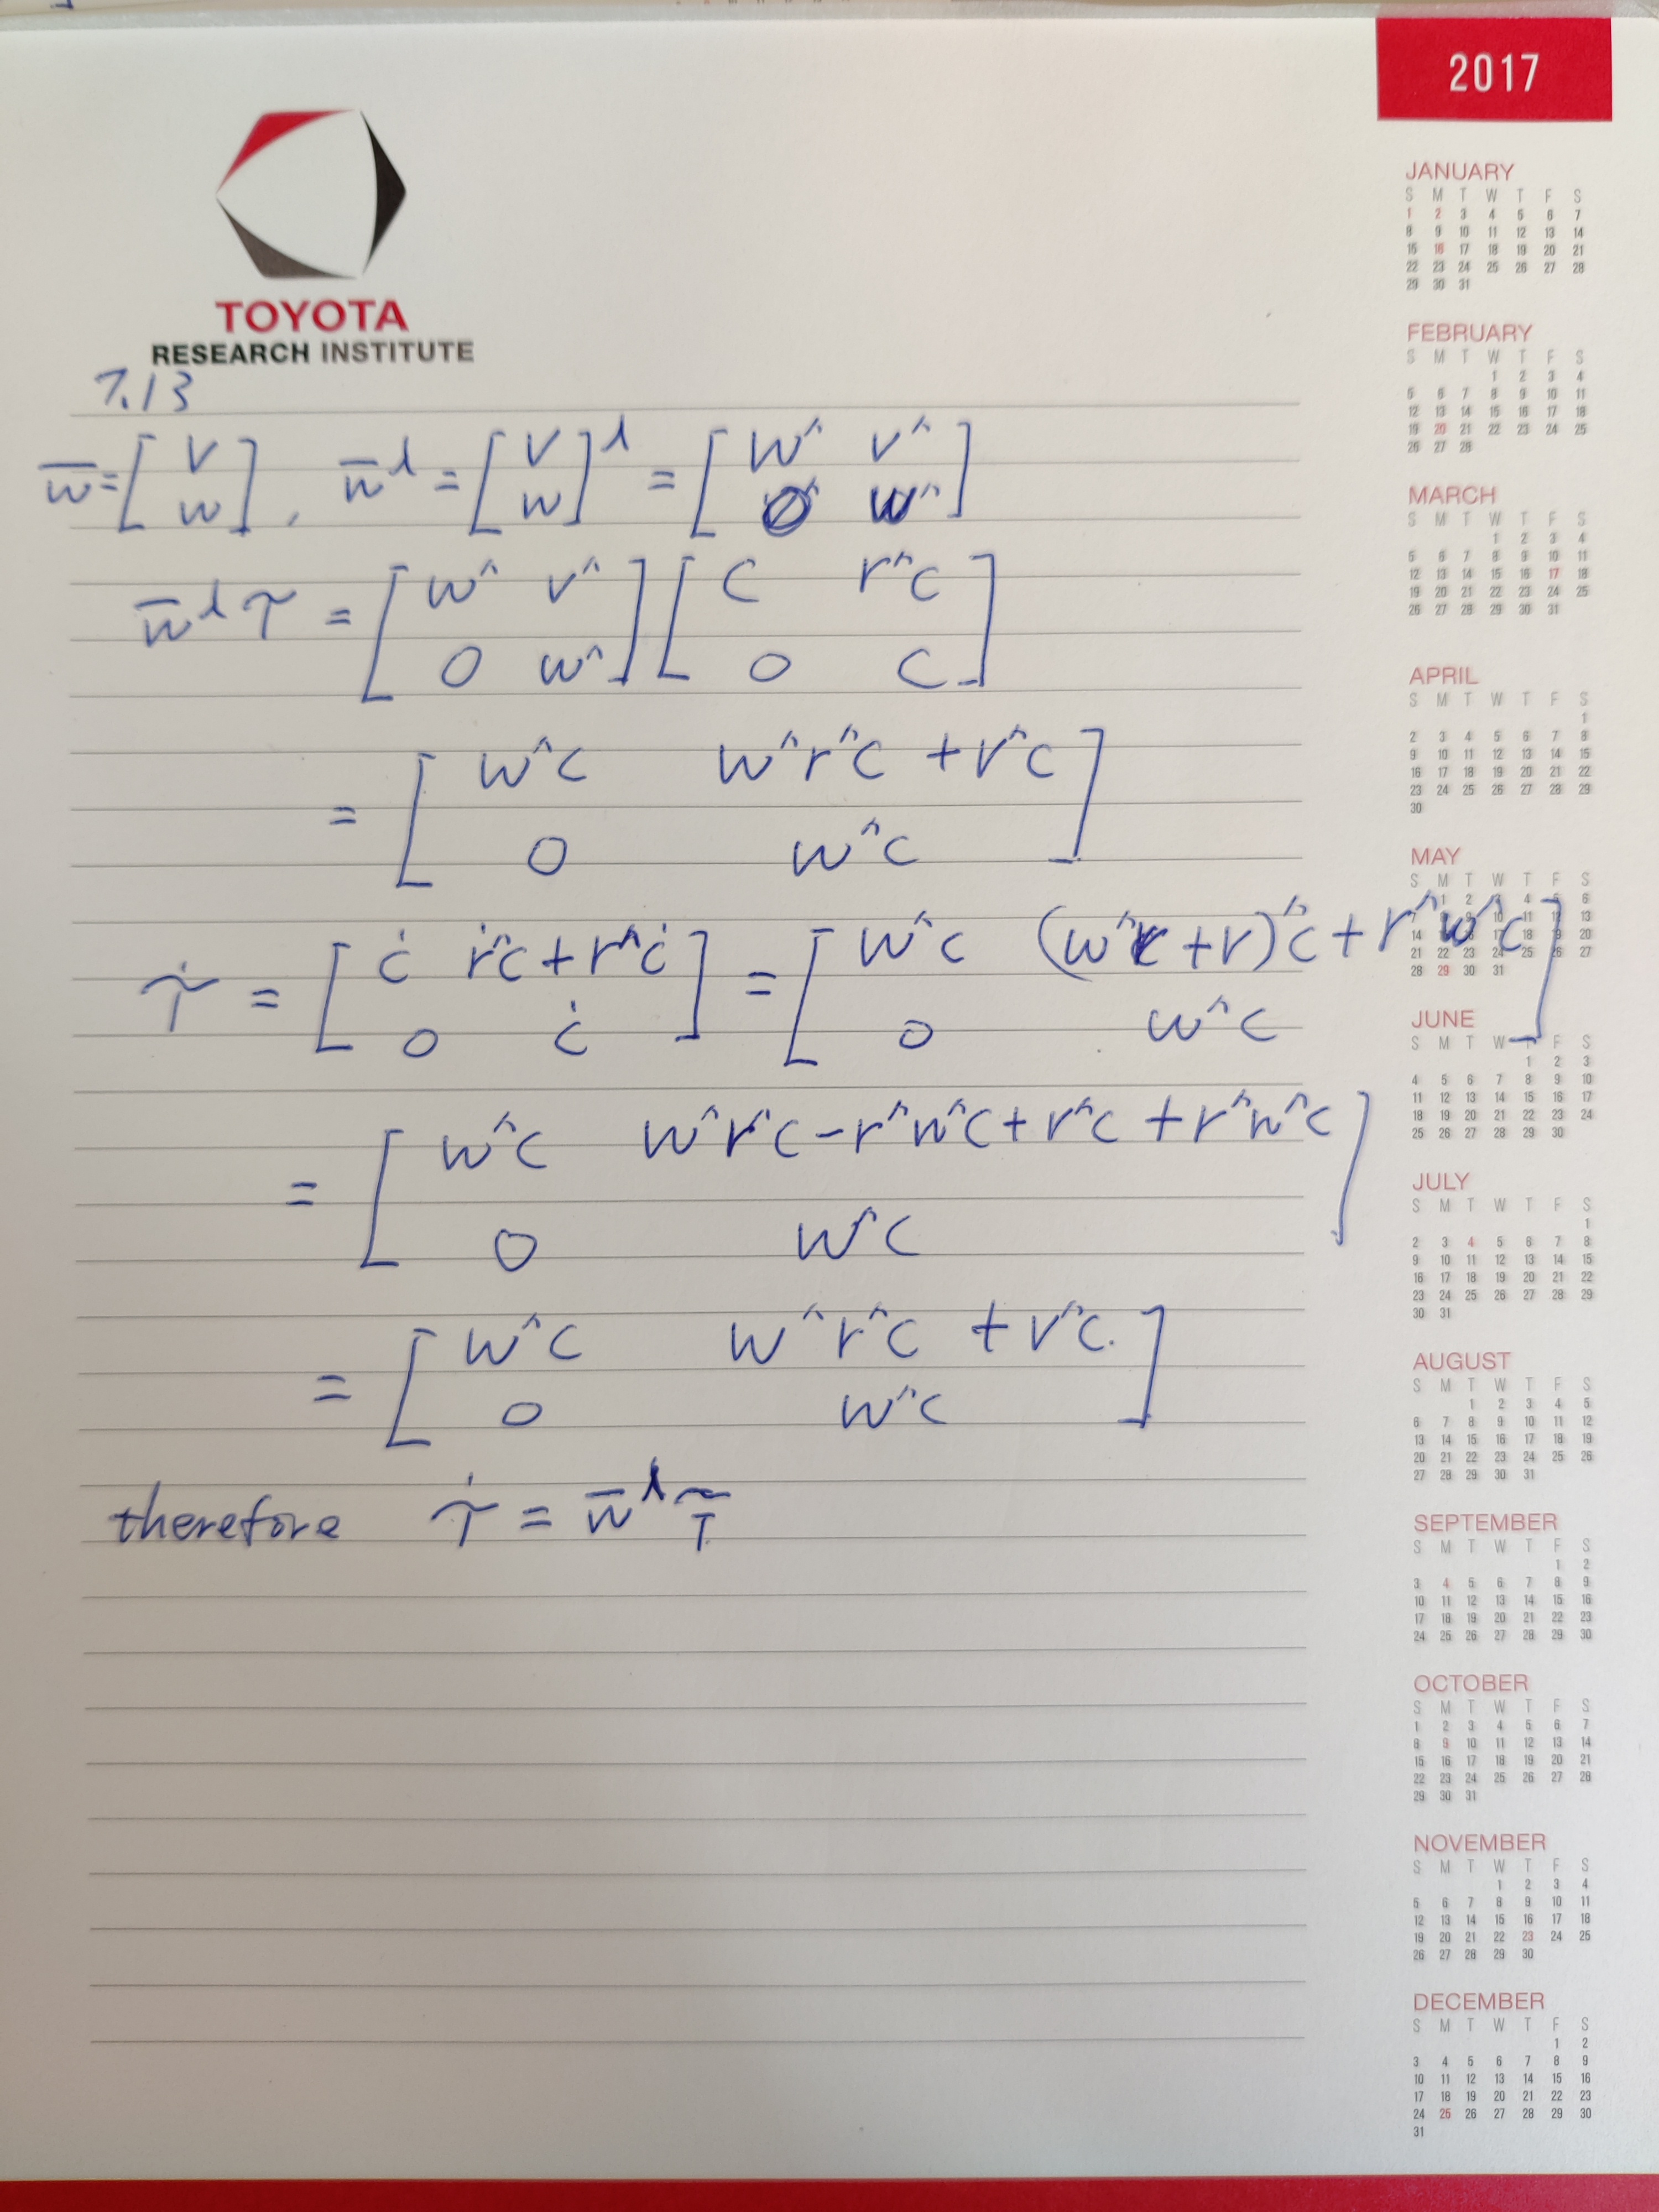 2017
TOYOTA
RESEARCH INSTITUTE
7.13
w̄ = [ v ; w ], w̄^⅄ = [ v ; w ]^⅄ = [ w^ v^ ; 0 w^ ]
w̄^⅄ 𝒯 = [ w^ v^ ; 0 w^ ] [ C r^C ; 0 C ]
= [ w^C w^r^C + v^C ; 0 w^C ]
𝒯̇ = [ Ċ ṙ^C + r^Ċ ; 0 Ċ ] = [ w^C (w^r + v)^C + r^w^C ; 0 w^C ]
= [ w^C w^r^C - r^w^C + v^C + r^w^C ; 0 w^C ]
= [ w^C w^r^C + v^C ; 0 w^C ]
therefore 𝒯̇ = w̄^⅄ 𝒯
JANUARY
S M T W T F S
1 2 3 4 5 6 7
8 9 10 11 12 13 14
15 16 17 18 19 20 21
22 23 24 25 26 27 28
29 30 31
FEBRUARY
S M T W T F S
1 2 3 4
5 6 7 8 9 10 11
12 13 14 15 16 17 18
19 20 21 22 23 24 25
26 27 28
MARCH
S M T W T F S
1 2 3 4
5 6 7 8 9 10 11
12 13 14 15 16 17 18
19 20 21 22 23 24 25
26 27 28 29 30 31
APRIL
S M T W T F S
1
2 3 4 5 6 7 8
9 10 11 12 13 14 15
16 17 18 19 20 21 22
23 24 25 26 27 28 29
30
MAY
S M T W T F S
1 2 3 4 5 6
7 8 9 10 11 12 13
14 15 16 17 18 19 20
21 22 23 24 25 26 27
28 29 30 31
JUNE
S M T W T F S
1 2 3
4 5 6 7 8 9 10
11 12 13 14 15 16 17
18 19 20 21 22 23 24
25 26 27 28 29 30
JULY
S M T W T F S
1
2 3 4 5 6 7 8
9 10 11 12 13 14 15
16 17 18 19 20 21 22
23 24 25 26 27 28 29
30 31
AUGUST
S M T W T F S
1 2 3 4 5
6 7 8 9 10 11 12
13 14 15 16 17 18 19
20 21 22 23 24 25 26
27 28 29 30 31
SEPTEMBER
S M T W T F S
1 2
3 4 5 6 7 8 9
10 11 12 13 14 15 16
17 18 19 20 21 22 23
24 25 26 27 28 29 30
OCTOBER
S M T W T F S
1 2 3 4 5 6 7
8 9 10 11 12 13 14
15 16 17 18 19 20 21
22 23 24 25 26 27 28
29 30 31
NOVEMBER
S M T W T F S
1 2 3 4
5 6 7 8 9 10 11
12 13 14 15 16 17 18
19 20 21 22 23 24 25
26 27 28 29 30
DECEMBER
S M T W T F S
1 2
3 4 5 6 7 8 9
10 11 12 13 14 15 16
17 18 19 20 21 22 23
24 25 26 27 28 29 30
31